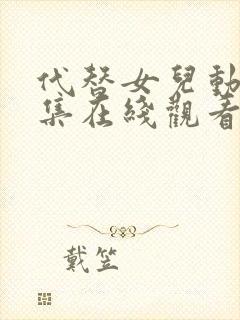 代替女兒動
集在綫觀看
戴笠